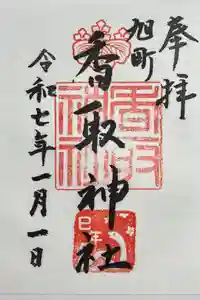 奉拝
旭町
香取神社
令和七年一月一日
香取
神社
巳年